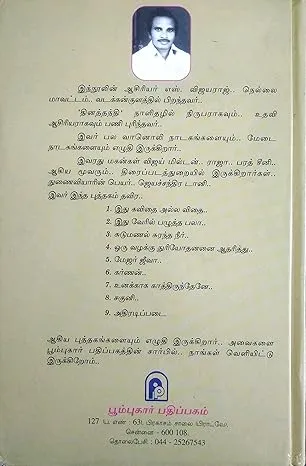 இந்நூலின் ஆசிரியர் எஸ். விஜயராஜ். நெல்லை
மாவட்டம்.. வடக்கன்குளத்தில் பிறந்தவர்..
"தினத்தந்தி" நாளிதழில் நிருபராகவும்.. உதவி
ஆசிரியராகவும் பணி புரிந்தவர்..
இவர் பல வானொலி நாடகங்களையும்.. மேடை
நாடகங்களையும் எழுதி இருக்கிறார்..
இவரது மகன்கள் விஜய் மில்டன்.. ராஜா.. பரத் சீனி..
ஆகிய மூவரும்.. திரைப்படத்துறையில் இருக்கிறார்கள்..
துணைவியாரின் பெயர்.. ஜெயச்சந்திர டானி..
இவர் இந்த புத்தகம் தவிர..
1. இது கவிதை அல்ல விதை..
2. இது வேரில் பழுத்த பலா..
3. சுடுமணல் சுரந்த நீர்..
4. ஒரு வழக்கு துரியோதனனை ஆதரித்து..
5. மேஜர் ஜீவா..
6. கர்ணன்..
7. உனக்காக காத்திருந்தேனே..
8. சகுனி..
9. அதிரடிப்படை
ஆகிய புத்தகங்களையும் எழுதி இருக்கிறார்.. அவைகளை
பூம்புகார் பதிப்பகத்தின் சார்பில்.. நாங்கள் வெளியிட்டு
இருக்கிறோம்..
பூம்புகார் பதிப்பகம்
127 ப. எண் : 63, பிரகாசம் சாலை (பிராட்வே),
சென்னை - 600 108.
தொலைபேசி : 044 - 25267543